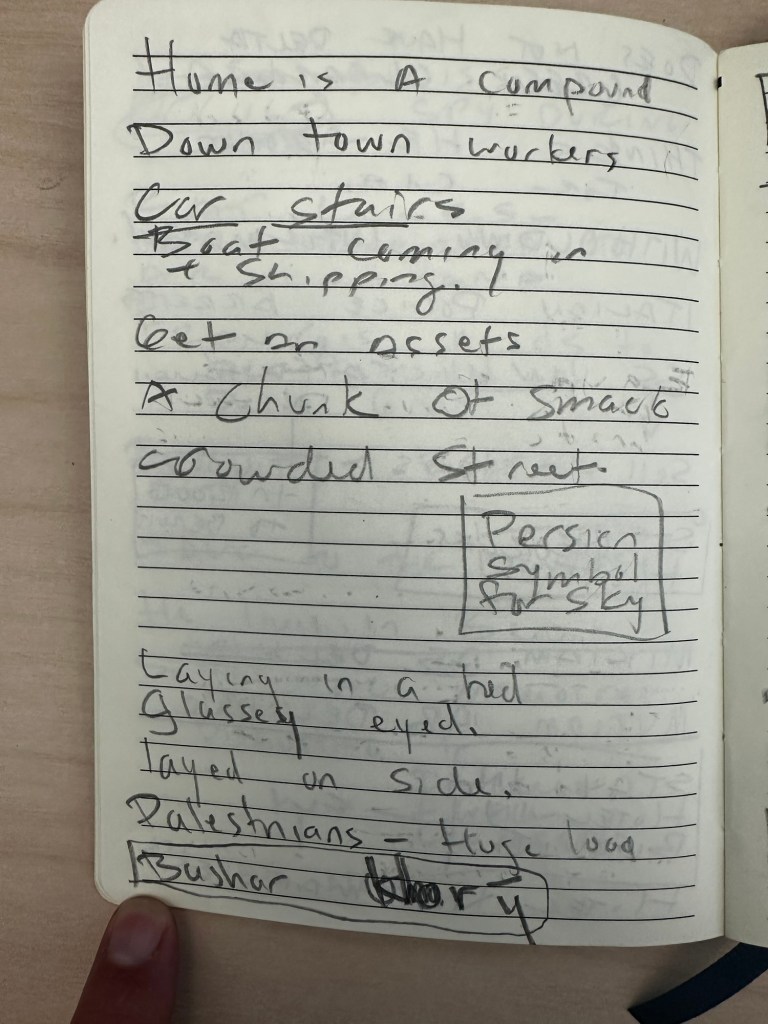 Home is A compound
Down town workers
Car stairs
Boat coming in
+ Shipping.
Get on Assets
A Chunk Of Smack
crowded Street.
Persian
symbol
for sky
Laying in a bed
Glassey eyed.
layed on side.
Palestnians - Huge load
Bushar